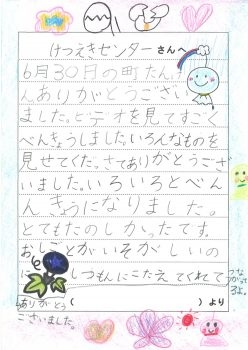 けつえきセンターさんへ
6月30日の町たんけ
んありがとうござい
ました。ビデオを見てすごく
べんきょうしました。いろんなものを
見せてくださってありがとうござ
いました。いろいろとべん
んきょうになりました。
とてもたのしかったです。
おしごとがいそがしいの
に しつもんにこたえてくれて
ありがとう
ございました。
( )より